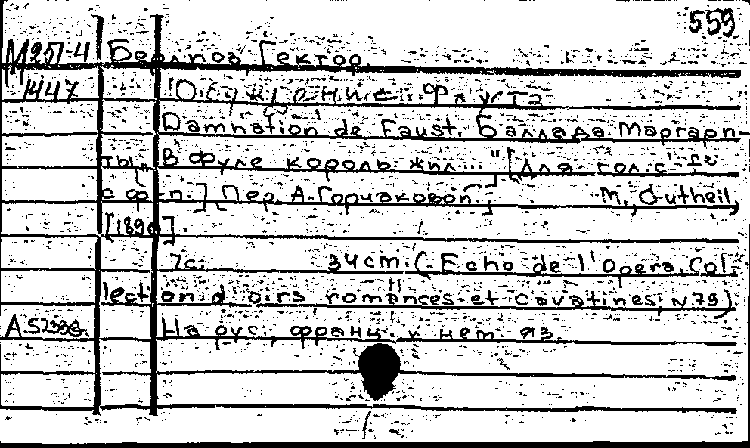 559
М251-4 Берлиоз, Гектор.
1447 Осуждение Фауста
Damnation de Faust. Баллада Маргари-
ты "В Фуле король жил..." [Для гол. с
с ф-п.] Пер. А. Горчаковой. М., Gutheil,
[1890].
7с. 34cm. (Echo de l'Opera. Col-
lection d'airs romances et cavatines, N 79)
На рус., франц. и нем. яз.